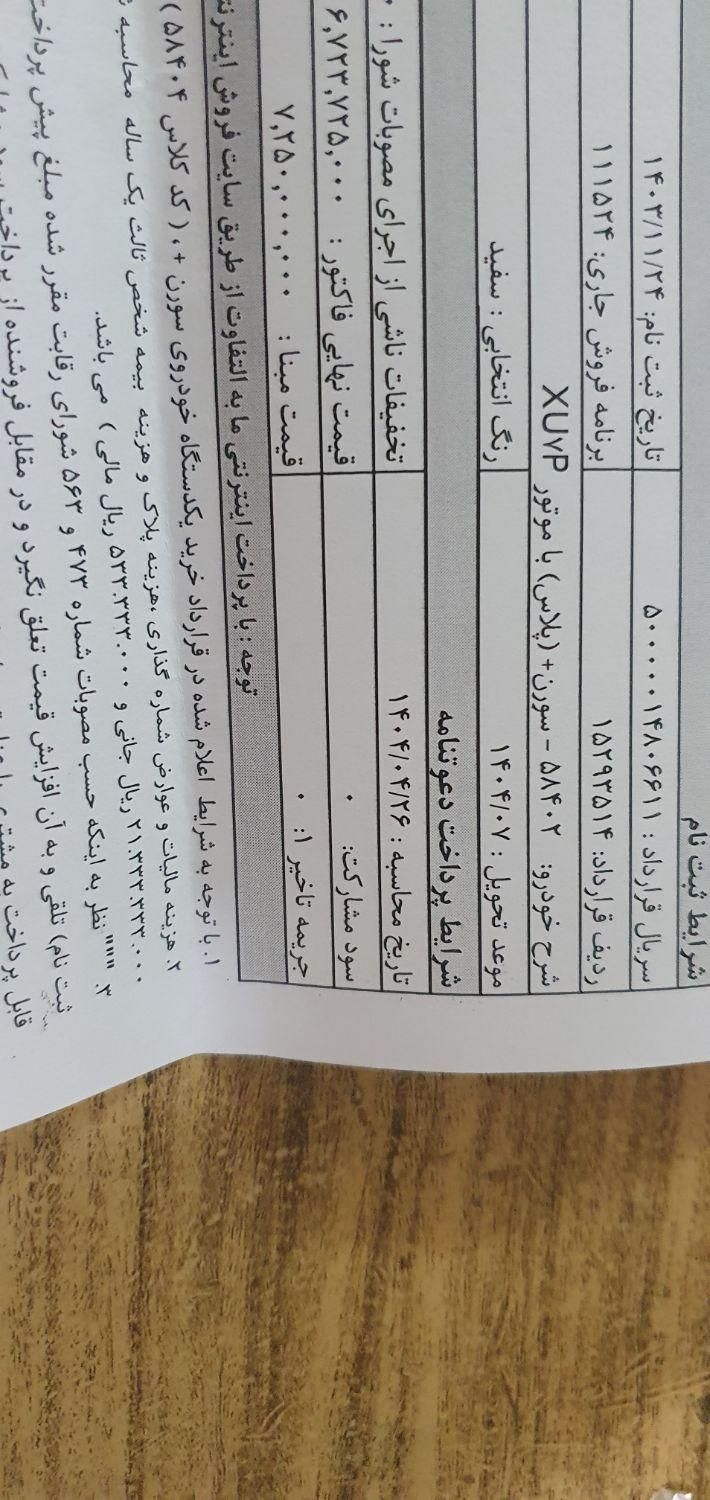 شرایط ثبت نام
سریال قرارداد: ۵۰۰۰۰۰۱۴۸۰۶۶۱۱ تاریخ ثبت نام: ۱۴۰۳/۱۱/۲۴
ردیف قرارداد: ۱۵۲۹۳۵۱۴ برنامه فروش جاری: ۱۱۱۵۲۴
شرح خودرو: ۵۸۴۰۲ - سورن+ (پلاس) با موتور XU۷P
موعد تحویل : ۱۴۰۴/۰۷ رنگ انتخابی : سفید
شرایط پرداخت دعوتنامه
تاریخ محاسبه : ۱۴۰۴/۰۴/۲۶ تخفیفات ناشی از اجرای مصوبات شورا : ۰
سود مشارکت: ۰ قیمت نهایی فاکتور : ۶,۷۲۳,۷۲۵,۰۰۰
جریمه تاخیر ۱: ۰ قیمت مبنا : ۷,۲۵۰,۰۰۰,۰۰۰
توجه : با پرداخت اینترنتی ما به التفاوت از طریق سایت فروش
۱. با توجه به شرایط اعلام شده در قرارداد خرید یکدستگاه خودروی سورن +۰ ( کد کلاس ۵۸۴۰۴ )
۲. هزینه مالیات و عوارض شماره گذاری ،هزینه پلاک و هزینه بیمه شخص ثالث یک ساله محاسبه
۲۱.۳۳۳.۳۳۳.۰۰۰ ریال جانی و ۵۳۳.۳۳۳.۰۰۰ ریال مالی ) می باشد.
۳. """ نظر به اینکه حسب مصوبات شماره ۴۷۳ و ۵۶۳ شورای رقابت مقرر شده مبلغ پیش
ثبت نام) تلقی و به آن افزایش قیمت تعلق نگیرد و در مقابل فروشنده از پرداخت
قابل پرداخت به مشتری